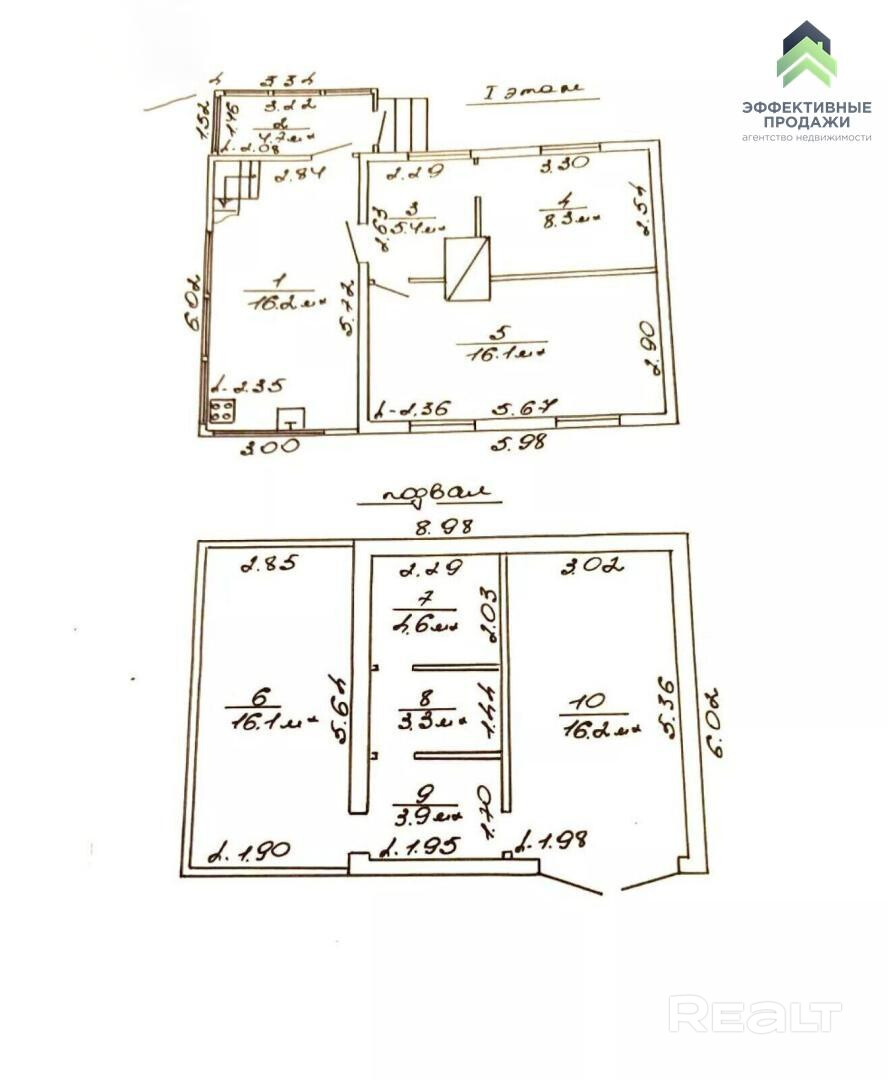 ЭФФЕКТИВНЫЕ
ПРОДАЖИ
агентство недвижимости
I этаж
3.34
3.22
1.52
1.46
2
4.7 м²
h-2.08
2.84
2.29
3.30
3
5.4 м²
2.63
4
8.3 м²
2.54
1
16.2 м²
6.02
5.72
5
16.1 м²
2.90
h-2.35
h-2.36
5.67
3.00
5.98
подвал
8.98
2.85
2.29
3.02
7
4.6 м²
2.03
6
16.1 м²
5.64
8
3.3 м²
1.44
10
16.2 м²
5.36
6.02
9
3.9 м²
1.70
h.1.90
h.1.95
h.1.98
REALT